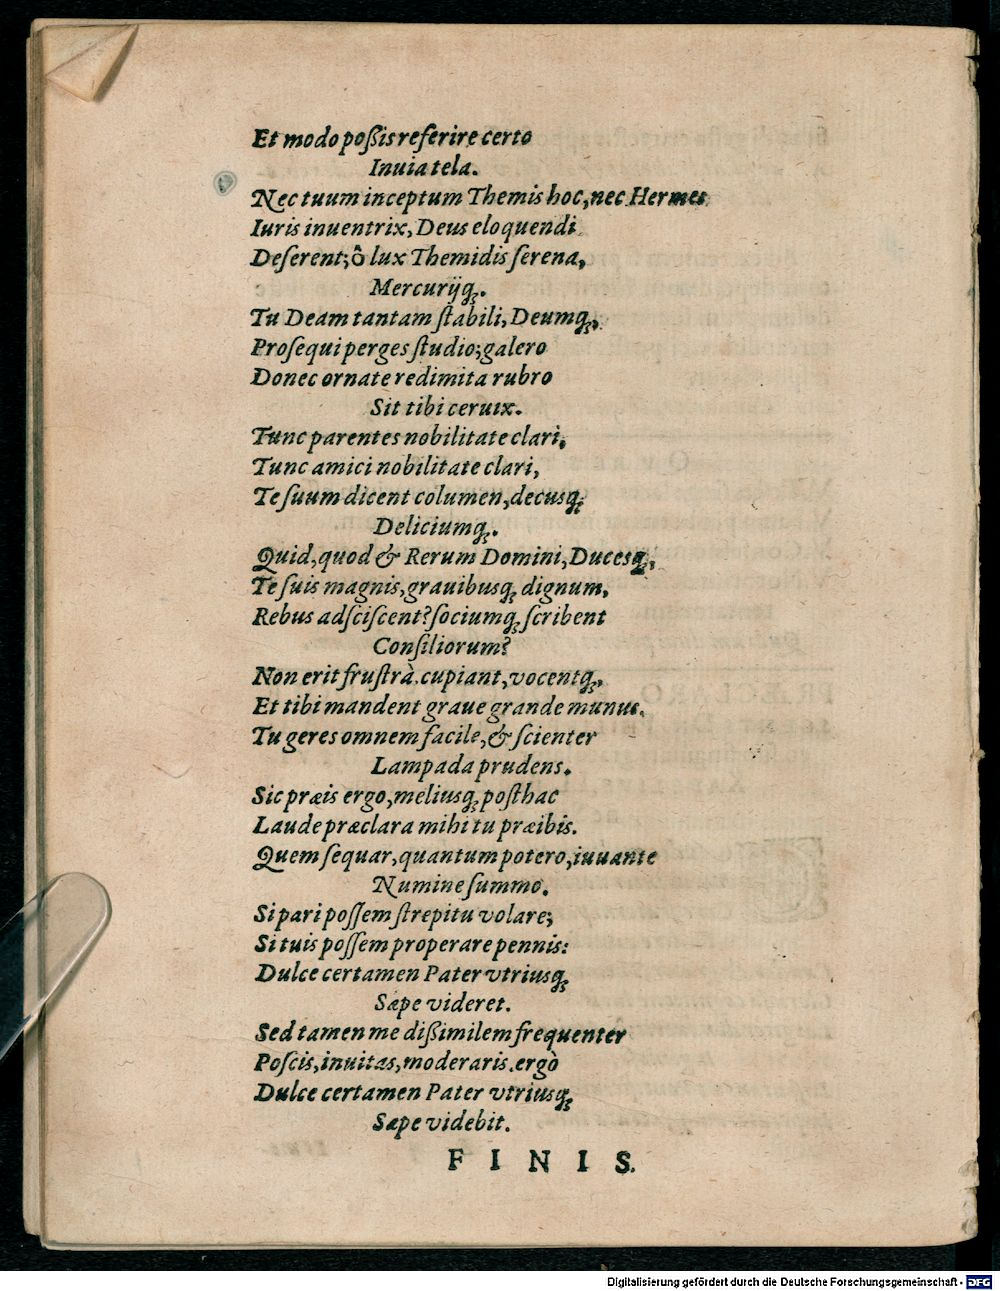 Et modo poßis referire certo
Inuia tela.
Nec tuum inceptum Themis hoc, nec Hermes
Iuris inuentrix, Deus eloquendi
Deferent; ô lux Themidis serena,
Mercurijq́;.
Tu Deam tantam stabili, Deumq́;,
Prosequi perges studio; galero
Donec ornate redimita rubro
Sit tibi ceruix.
Tunc parentes nobilitate clari,
Tunc amici nobilitate clari,
Te suum dicent columen, decusq́;
Deliciumq́;.
Quid, quod & Rerum Domini, Ducesq́;,
Te suis magnis, grauibusq́; dignum,
Rebus adsciscent? sociumq́; scribent
Consiliorum?
Non erit frustrà. cupiant, vocentq́;,
Et tibi mandent graue grande munus.
Tu geres omnem facile, & scienter
Lampada prudens.
Sic præis ergo, meliusq́; posthac
Laude præclara mihi tu præibis.
Quem sequar, quantum potero, iuuante
Numine summo.
Si pari possem strepitu volare;
Si tuis possem properare pennis:
Dulce certamen Pater vtriusq́;
Sæpe videret.
Sed tamen me dißimilem frequenter
Poscis, inuitas, moderaris. ergò
Dulce certamen Pater vtriusq́;
Sæpe videbit.
FINIS.
Digitalisierung gefördert durch die Deutsche Forschungsgemeinschaft - DFG